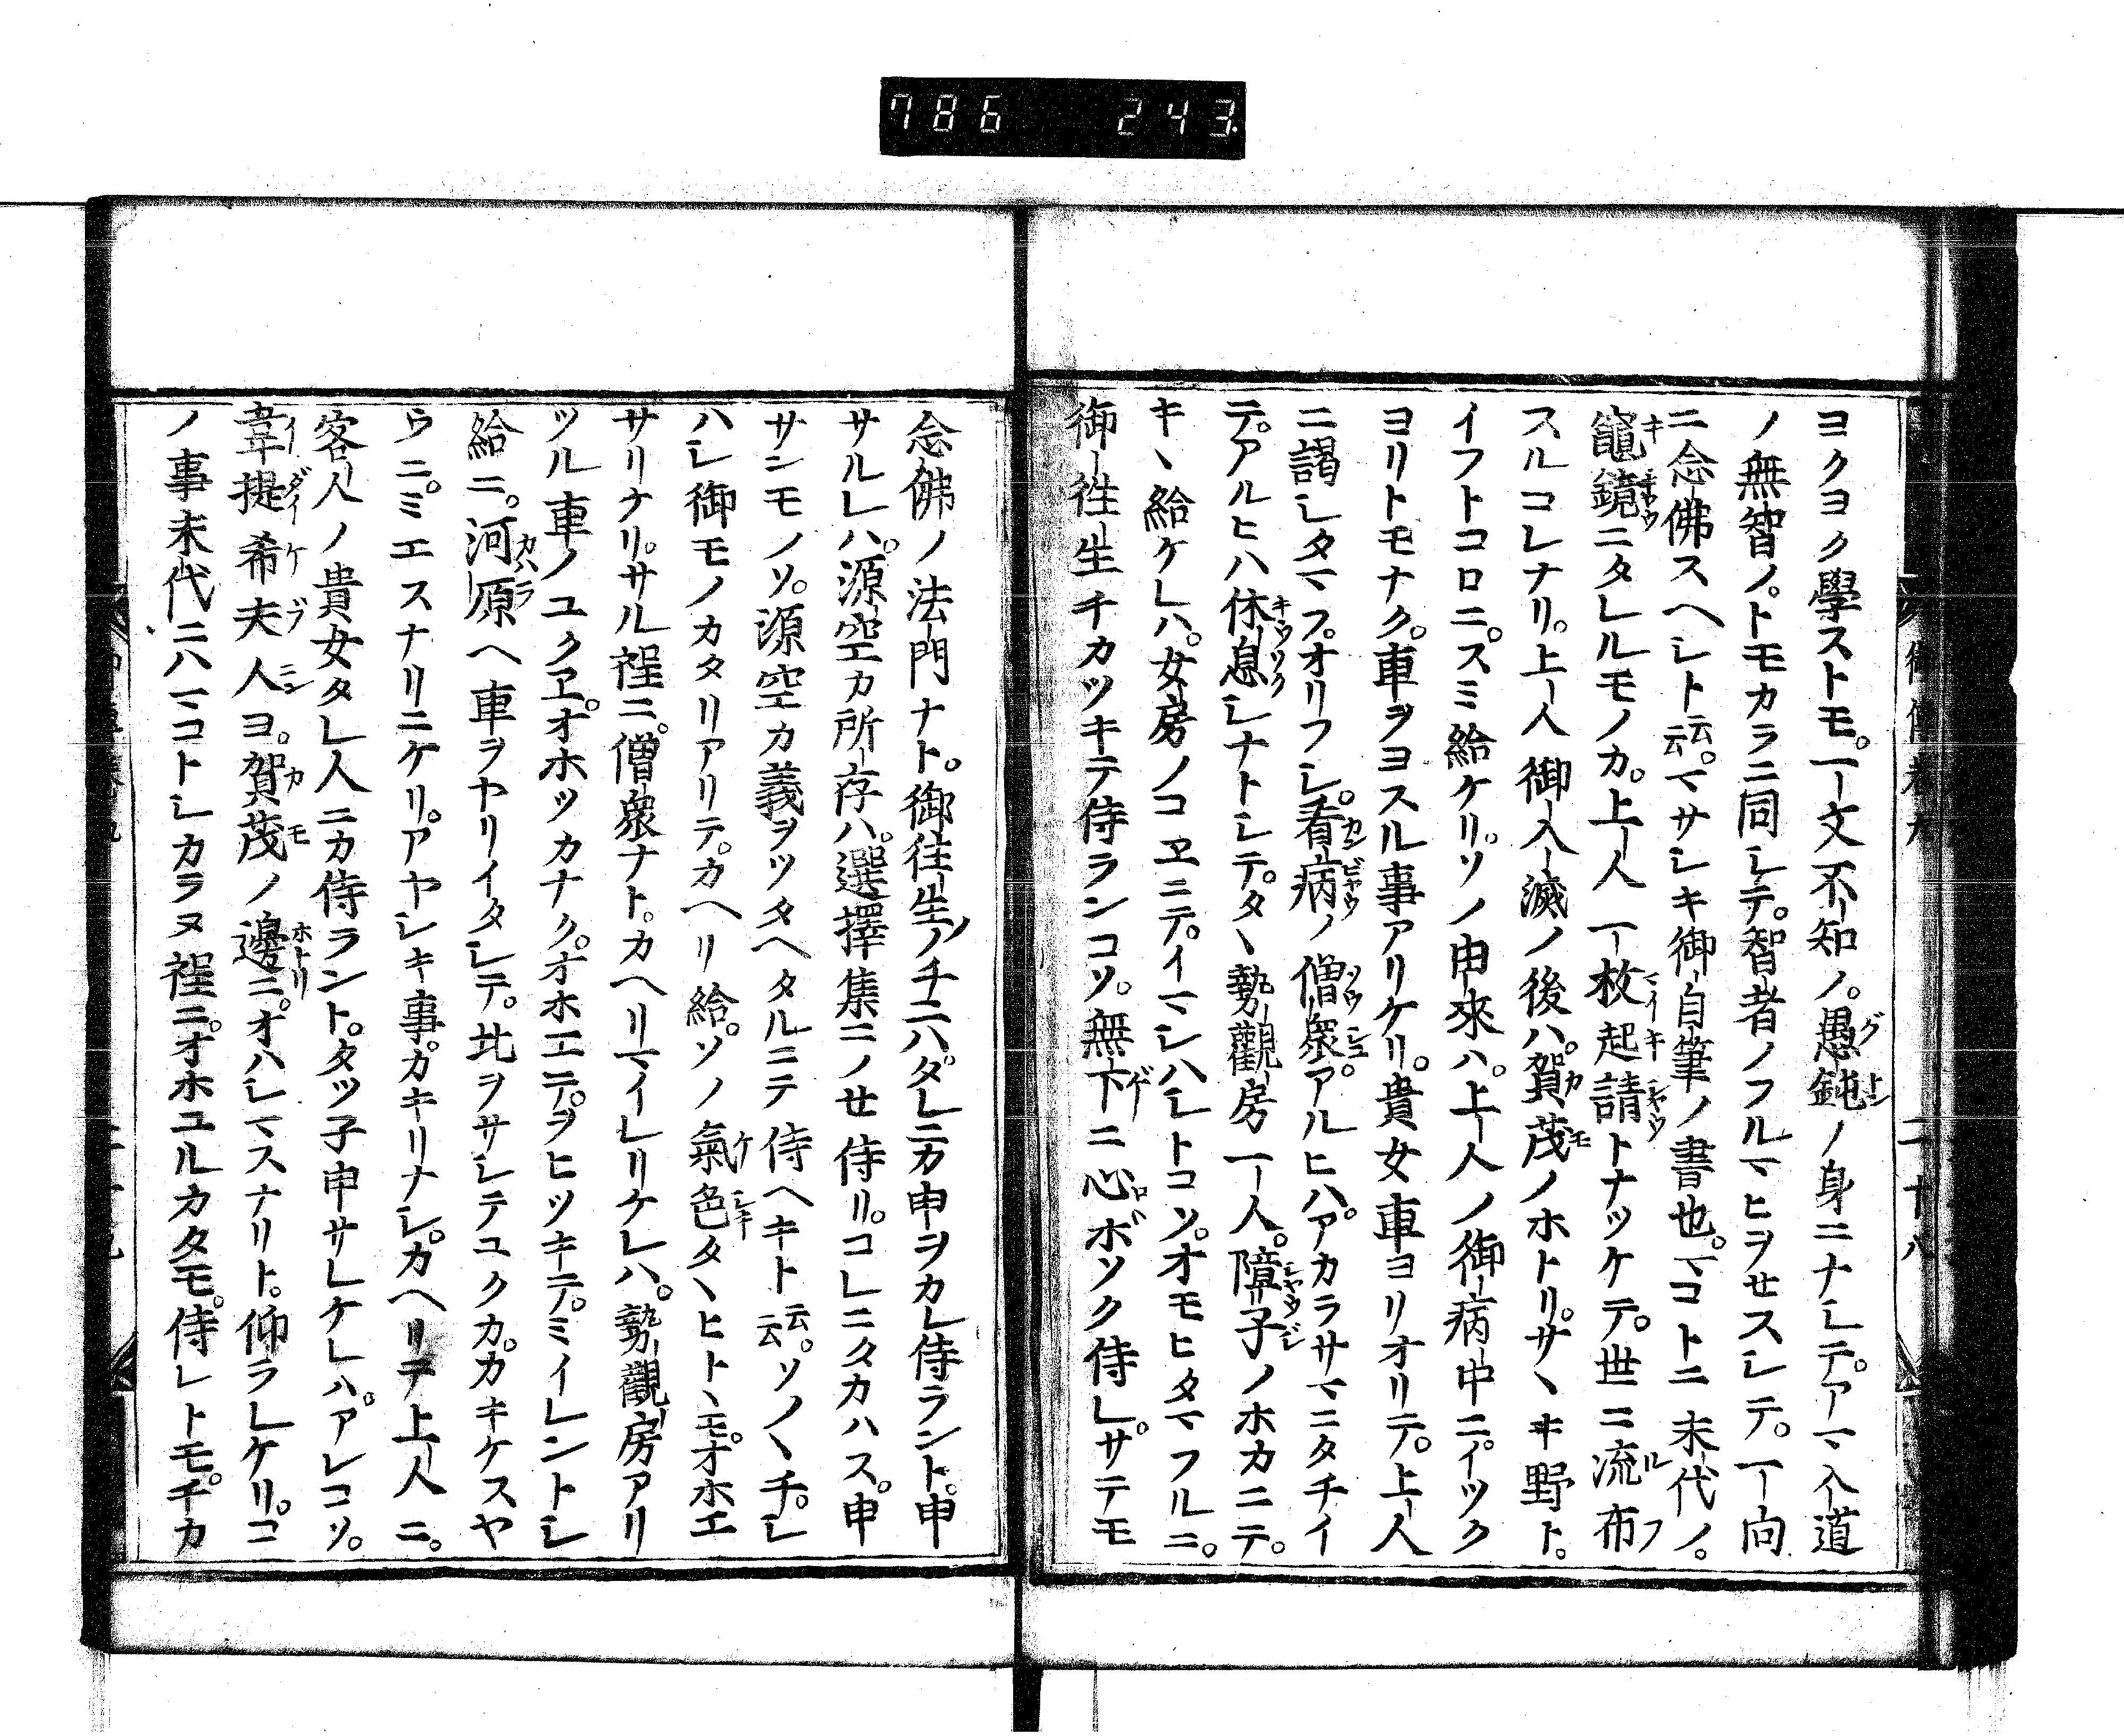 786 243
ヨクヨク學ストモ。一文不知ノ。愚鈍ノ身ニナシテ。アマ入道
ノ無智ノ。トモカラニ同シテ。智者ノフルマヒヲセスシテ。一向
ニ念佛スヘシト云云。マサシキ御自筆ノ書也。マコトニ末代ノ。
竈鏡ニタレルモノカ。上人一枚起請トナツケテ。世ニ流布
スルコレナリ。上人御入滅ノ後ハ。賀茂ノホトリ。サヽキ野ト。
イフトコロニ。スミ給ケリ。ソノ由來ハ。上人ノ御病中ニ。イツク
ヨリトモナク。車ヲヨスル事アリケリ。貴女車ヨリオリテ。上人
ニ謁シタマフ。オリフシ。看病ノ僧衆。アルヒハ。アカラサマニタチイ
テ。アルヒハ休息シナトシテ。タヽ勢觀房一人。障子ノホカニテ。
キヽ給ケレハ。女房ノコヱニテ。イマシハシトコソ。オモヒタマフルニ。
御往生チカツキテ侍ランコソ。無下ニ心ボソク侍レ。サテモ
念佛ノ法門ナト。御往生ノノチニハ。タレニカ申ヲカレ侍ラント。申
サルレハ。源空カ所存ハ。選擇集ニノセ侍リ。コレニタカハス。申
サンモノソ。源空カ義ヲツタヘタルニテ侍ヘキト云云。ソノヽチ。シ
ハシ御モノカタリアリテ。カヘリ給。ソノ氣色タヽヒトヽモ。オホエ
サリナリ。サル程ニ。僧衆ナト。カヘリマイレリケレハ。勢觀房アリ
ツル車ノユクヱ。オホツカナク。オホエテ。ヲヒツキテ。ミイレントシ
給ニ。河原ヘ車ヲヤリイタシテ。北ヲサシテユクカ。カキケスヤ
ウニ。ミエスナリニケリ。アヤシキ事。カキリナシ。カヘリテ上人ニ。
客人ノ貴女タレ人ニカ侍ラント。タツ子申サレケレハ。アレコソ。
韋提希夫人ヨ。賀茂ノ邊ニ。オハシマスナリト。仰ラレケリ。コ
ノ事末代ニハマコトシカラヌ程ニ。オホユルカタモ。侍レトモ。チカ